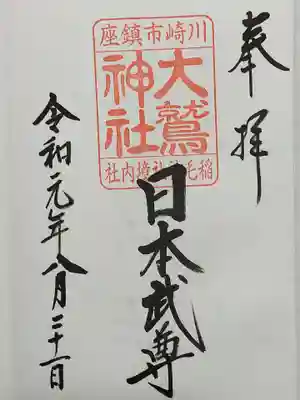 奉拝
川崎市鎮座
大鷲神社
稲毛神社境内社
日本武尊
令和元年八月二十一日